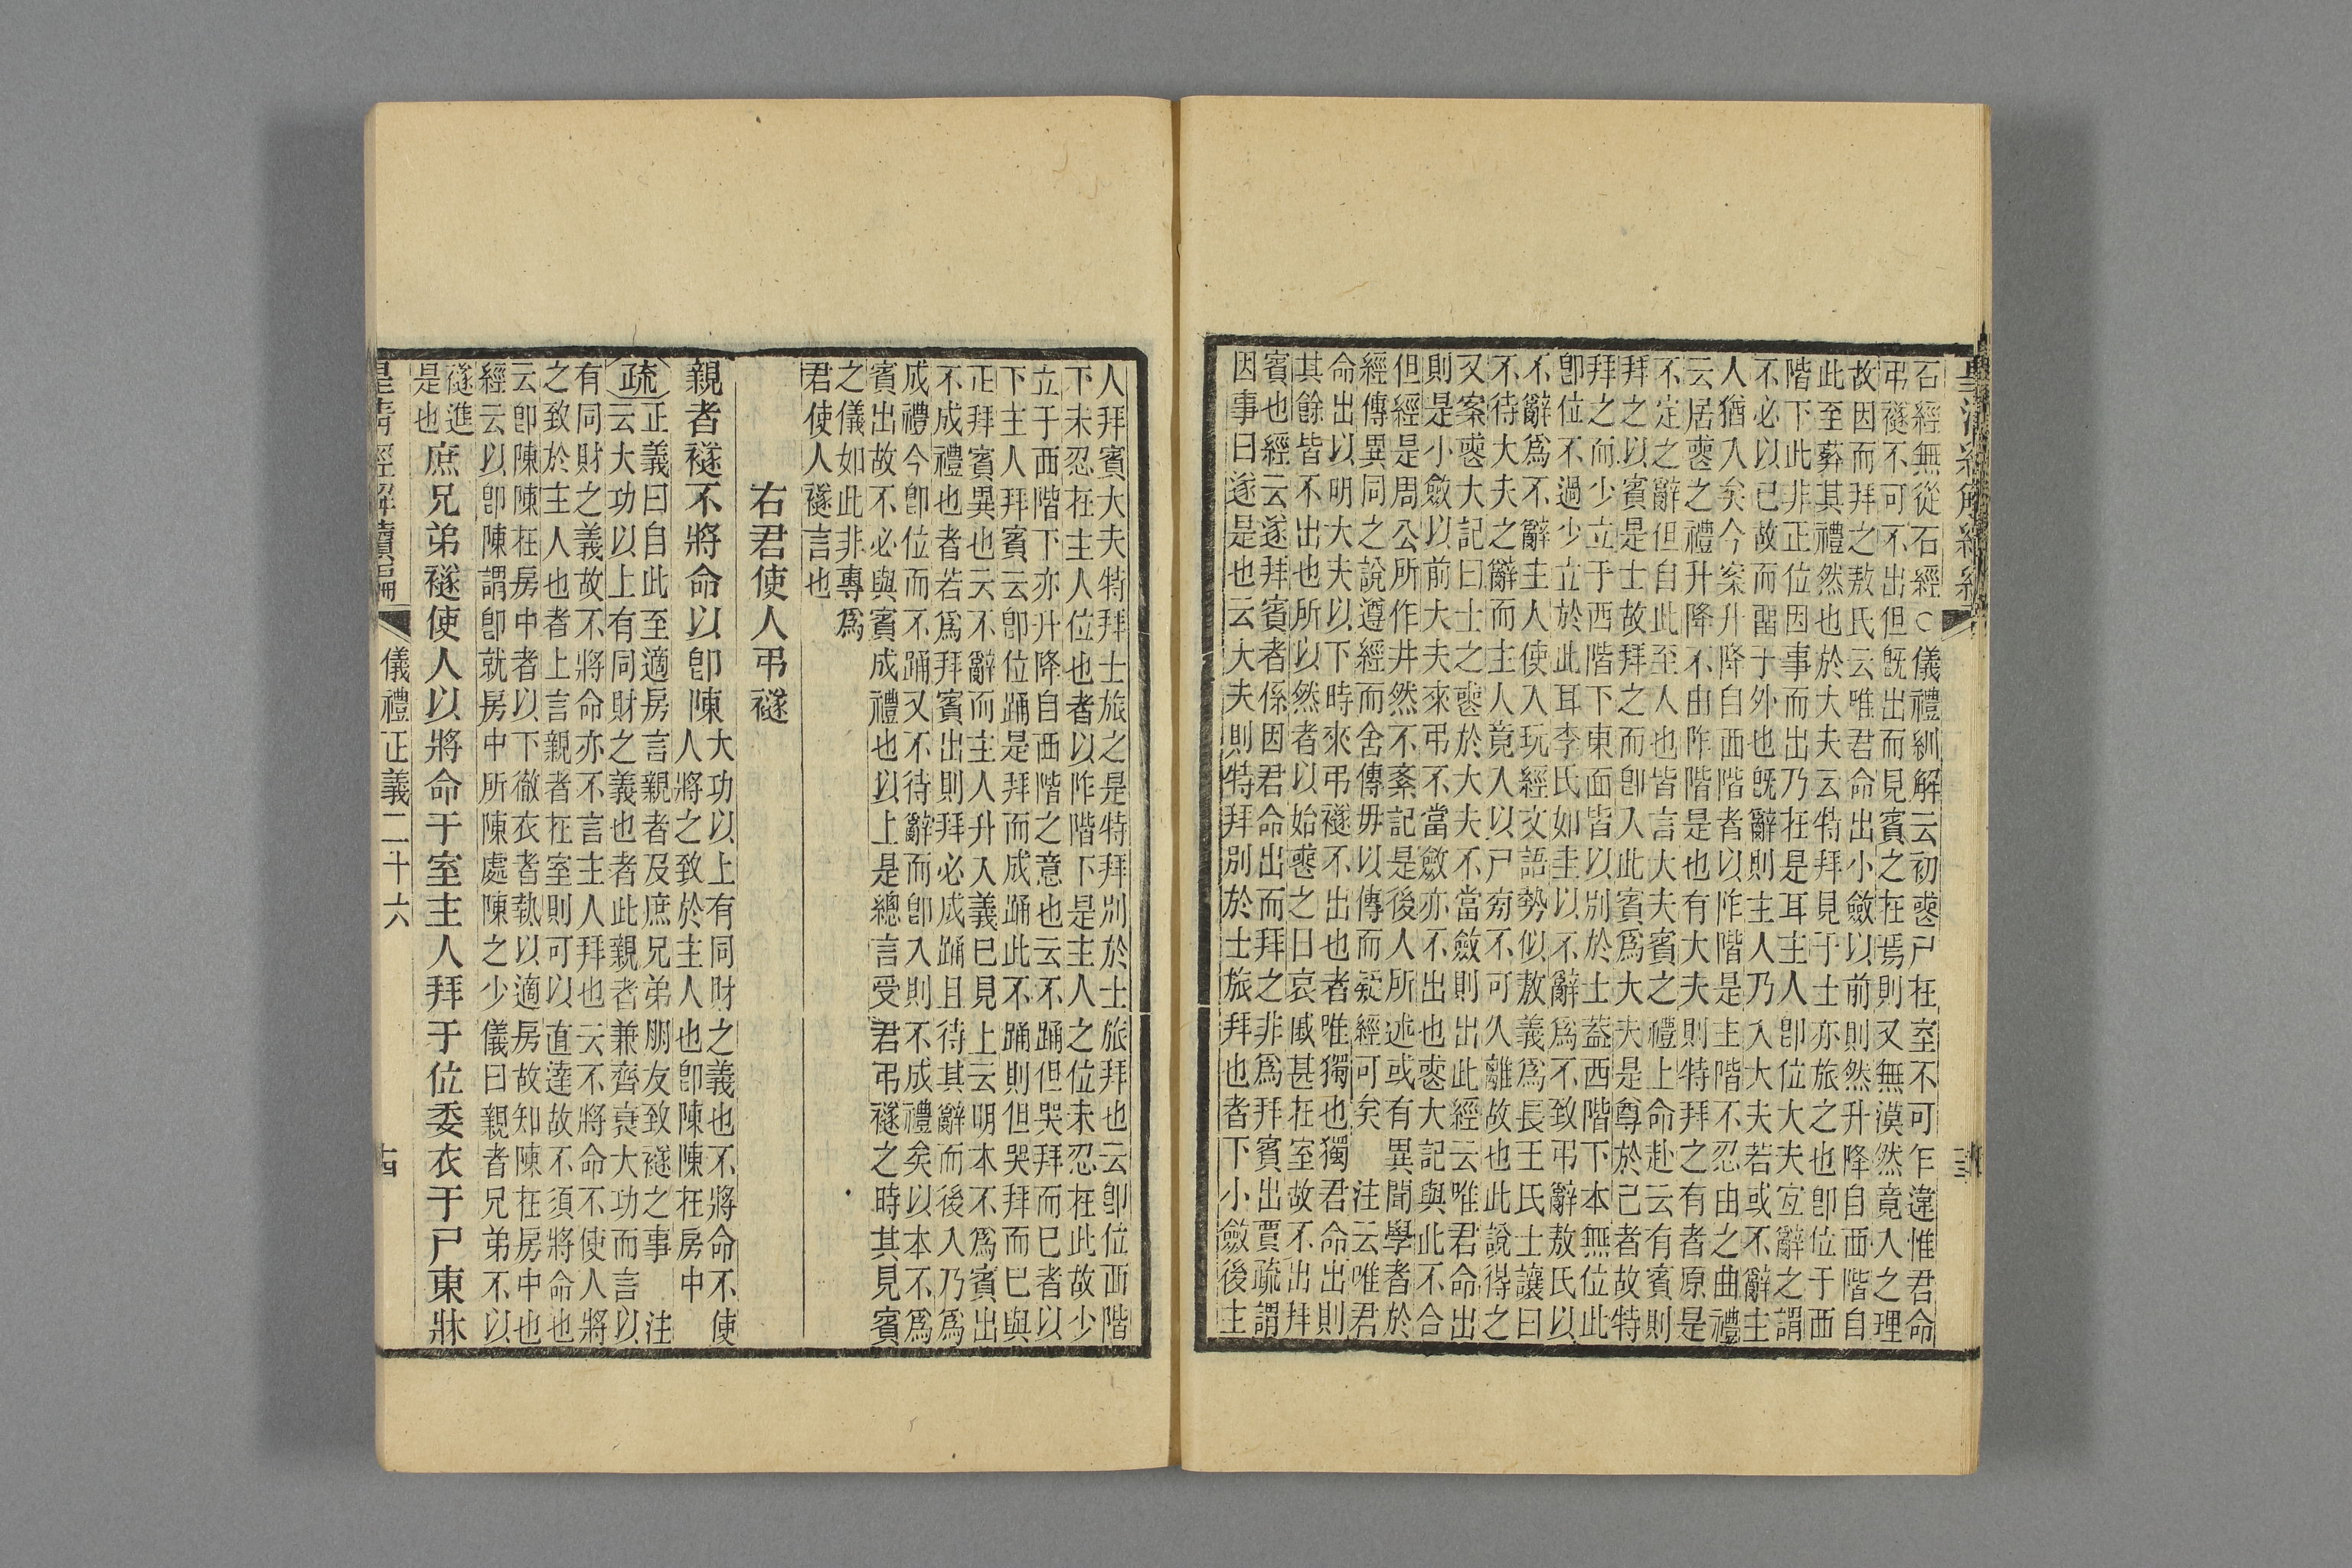 石經無從石經○儀禮紃解云初喪尸在室不可乍違惟君命
弔襚不可不出但既出而見賓之在焉則又無漠然竟入之理
故因而拜之敖氏云唯君命出小斂以前則然升降自西階自
此至葬其禮然也於大夫云特拜見于士亦旅之也卽位于西
階下此非正位因事而出乃在是耳主人卽位大夫宜辭之謂
不必以已故而畱于外也既辭則主人乃入大夫若或不辭主
人猶入矣今案升降自西階者以阼階是主階不忍由之曲禮
云居喪之禮升降不由阼階是也有大夫則特拜之有者原是
不定之辭但自此至人也皆言大夫賓之禮上命赴云有賓則
拜之以賓是士故拜之而卽入此賓爲大夫是尊於己者故特
拜之而少立于西階下東面皆以別於士蓋西階下本無位此
卽位不過少立於此耳李氏如圭以不辭爲不致弔辭敖氏以
不辭爲不辭主人使入玩經文語勢似敖義爲長王氏士讓曰
不待大夫之辭而主人竟入以尸旁不可久離故也此說得之
又案喪大記曰士之喪於大夫不當斂則出此經云唯君命出
則是小斂以前大夫來弔不當斂亦不出也喪大記與此不合
但經是周公所作井然不紊記是後人所述或有異聞學者於
經傳異同之說遵經而舍傳毋以傳而疑經可矣 注云唯君
命出以明大夫以下時來弔襚不出也者唯獨也獨君命出則
其餘皆不出也所以然者以始喪之日哀戚甚在室故不出拜
賓也經云遂拜賓者係因君命出而拜之非爲拜賓出賈疏謂
因事曰遂是也云大夫則特拜別於士旅拜也者下小斂後主
人拜賓大夫特拜士旅之是特拜別於士旅拜也云卽位西階
下未忍在主人位也者以阼階下是主人之位未忍在此故少
立于西階下亦升降自西階之意也云不踊但哭拜而巳者以
下主人拜賓云卽位踊是拜而成踊此不踊則但哭拜而巳與
正拜賓異也云不辭而主人升入義巳見上云明本不爲賓出
不成禮也者若爲拜賓出則拜必成踊且待其辭而後入乃爲
成禮今卽位而不踊又不待辭而卽入則不成禮矣以本不爲
賓出故不必與賓成禮也以上是總言受君弔襚之時其見賓
之儀如此非專爲
君使人襚言也
右君使人弔襚
親者襚不將命以卽陳
大功以上有同財之義也不將命不使
人將之致於主人也卽陳陳在房中
疏
正義曰自此至適房言親者及庶兄弟朋友致襚之事 注
云大功以上有同財之義也者此親者兼齊衰大功而言以
有同財之義故不將命亦不言主人拜也云不將命不使人將
之致於主人也者上言親者在室則可以直達故不須將命也
云卽陳陳在房中者以下徹衣者執以適房故知陳在房中也
經云以卽陳謂卽就房中所陳處陳之少儀曰親者兄弟不以
襚進
是也
庶兄弟襚使人以將命于室主人拜于位委衣于尸東牀
儀禮正義二十六